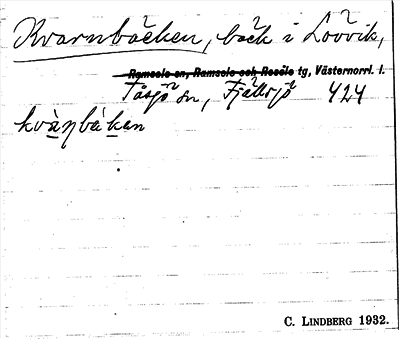 Kvarnbäcken, bäck i Lövvik,
Ramsele sn, Ramsele och Resele tg, Västernorrl. l.
Tåsjö sn, Fjällsjö 424
kvà̱ŋbäkan
C. LINDBERG 1932.